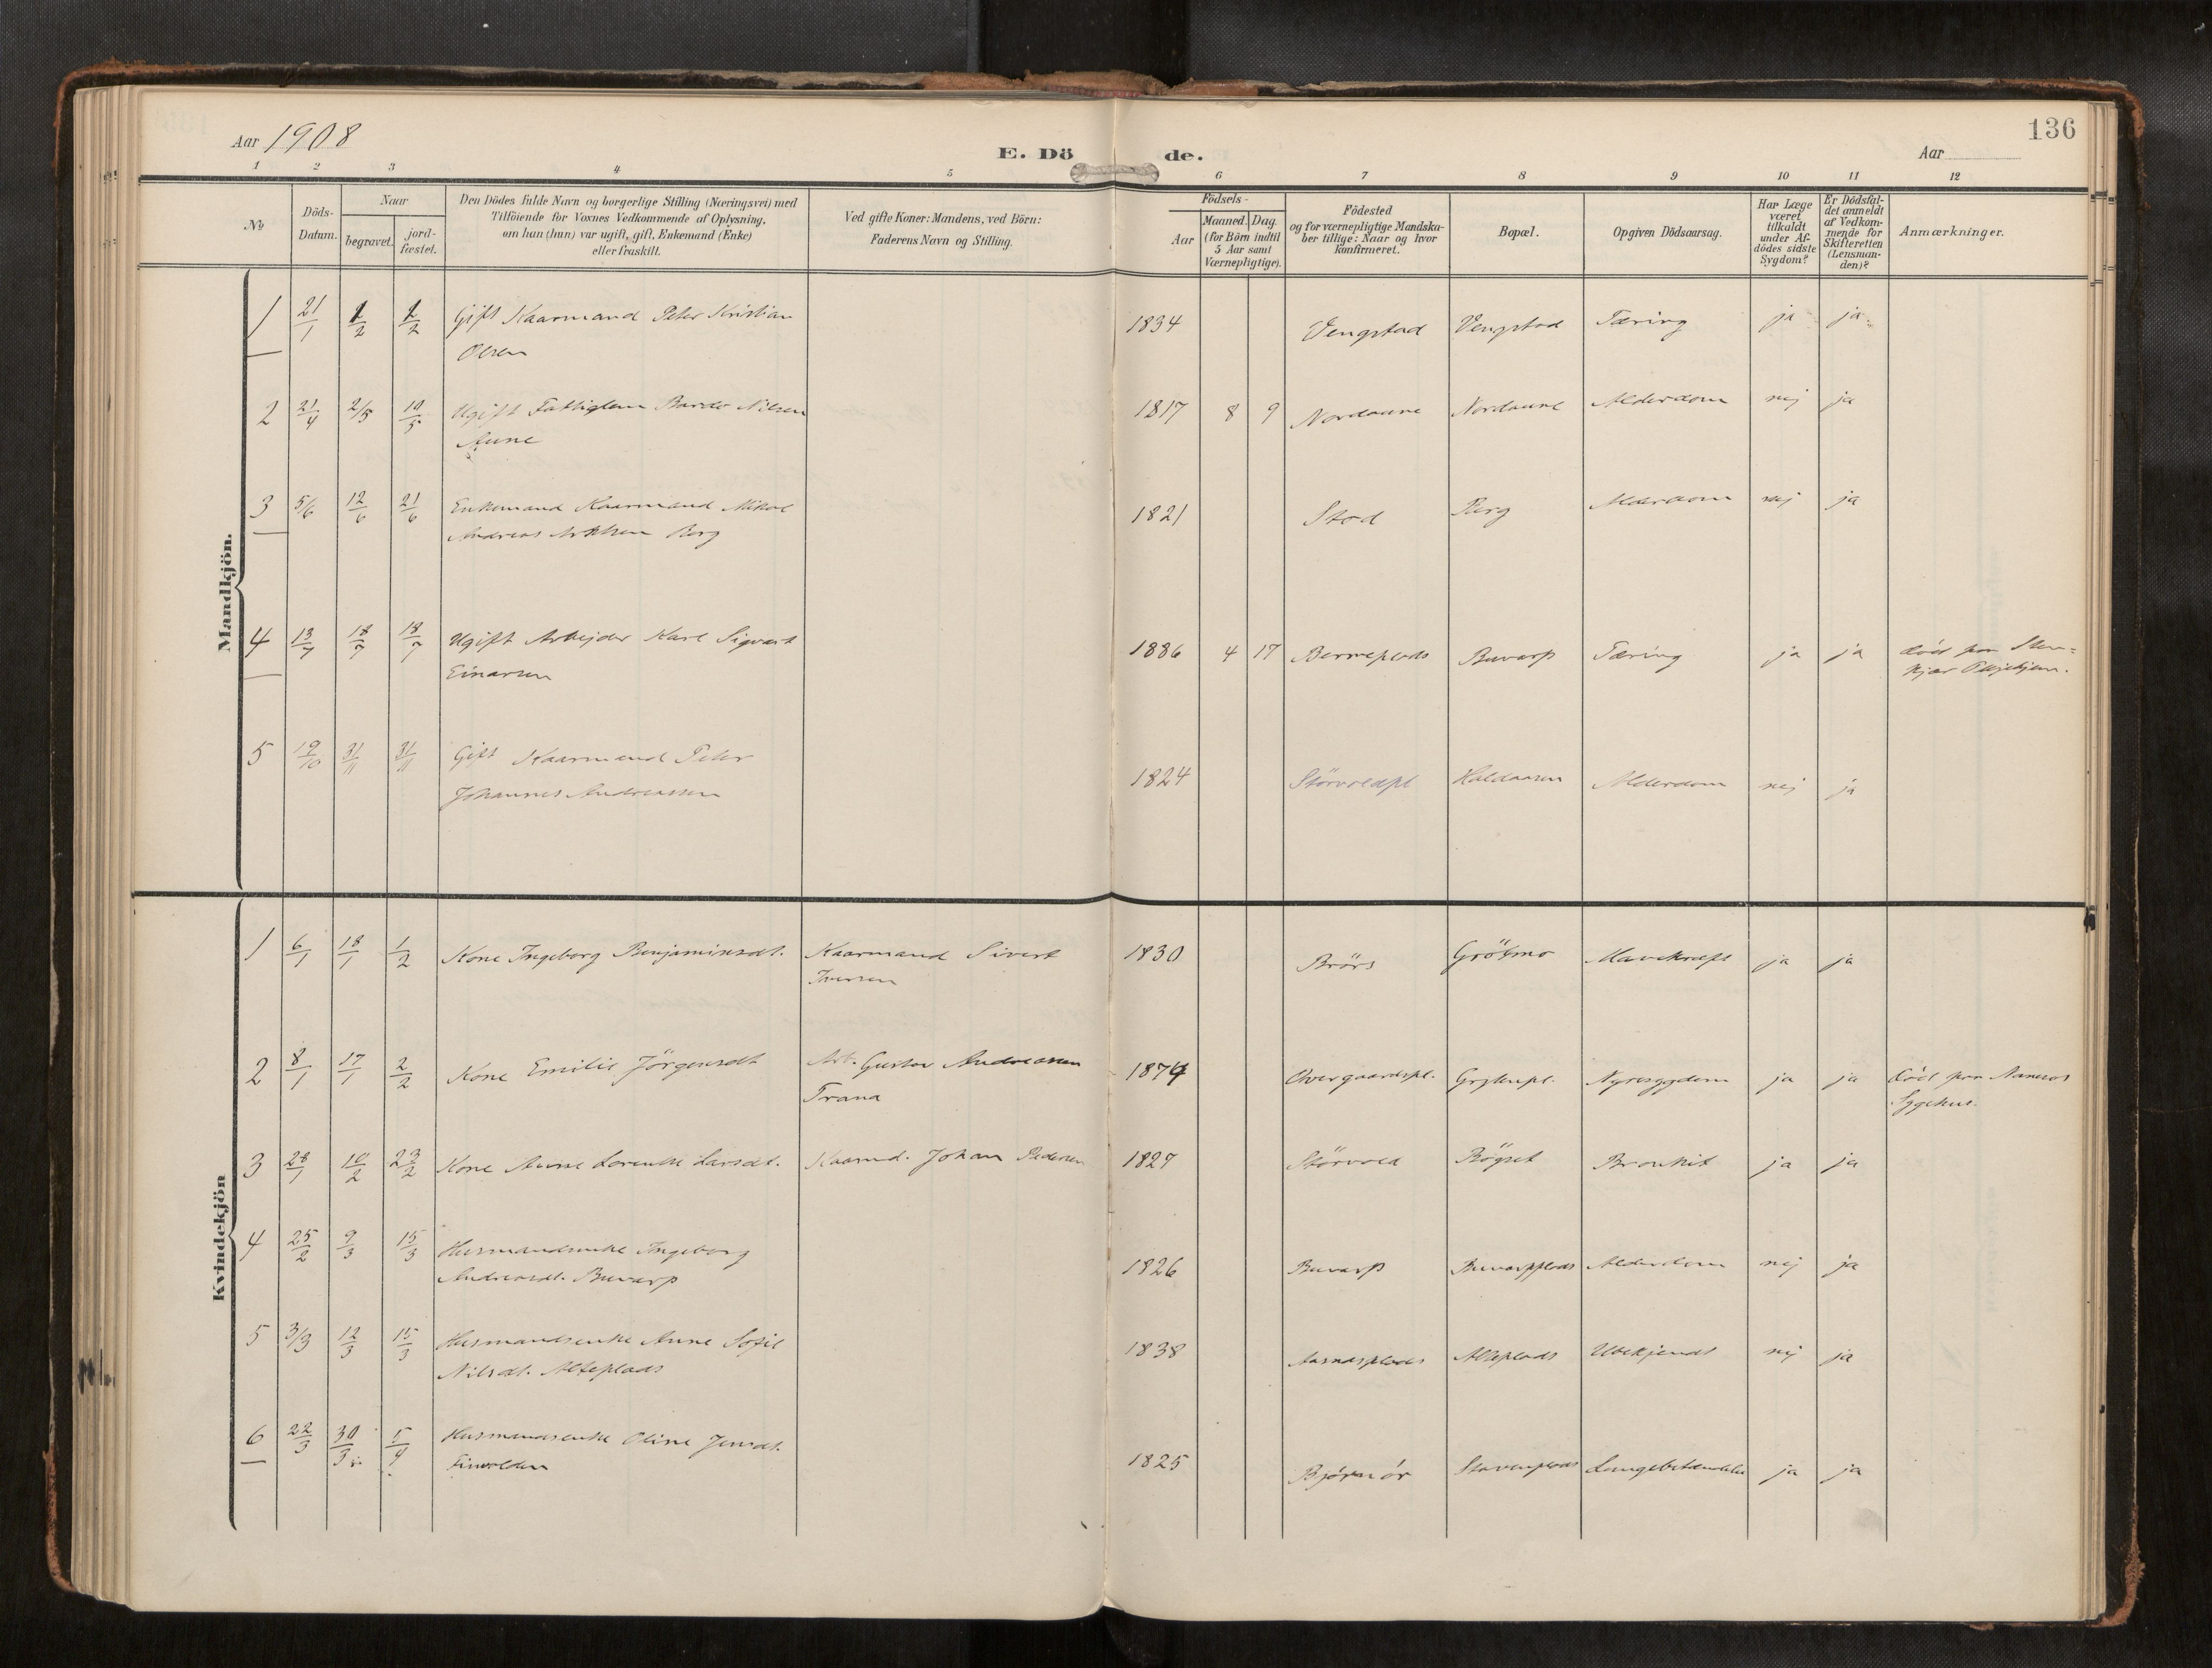 136
Aar 1908
E. Dö de.
Aar
1 2 3 4 5 6 7 8 9 10 11 12
No
Döds-
Datum.
Naar
begravet.
jord-
fæstet.
Den Dödes fulde Navn og borgerlige Stilling (Næringsvei) med
Tilföiende for Voxnes Vedkommende af Oplysning,
om han (hun) var ugift, gift, Enkemand (Enke)
eller fraskilt.
Ved gifte Koner: Mandens, ved Börn:
Faderens Navn og Stilling.
Födsels-
Aar
Maaned. Dag.
(for Börn indtil
5 Aar samt
Værnepligtige).
Födested
og for værnepligtige Mandska-
ber tillige: Naar og hvor
konfirmeret.
Bopæl.
Opgiven Dödsaarsag.
Har Læge
været
tilkaldt
under Af-
dödes sidste
Sygdom?
Er Dödsfal-
det anmeldt
af Vedkom-
mende for
Skifteretten
(Lensman-
den)?
Anmærkninger.
Mandkjön.
1 21/1 1/2 1/2 Gift Kaarmand Peter Kristian 1834 Vengstad Vengstad Tæring ja ja
Olsen
2 21/4 2/5 10/5 Ugift Fattiglem Bardo Nilsen 1817 8 9 Nordaune Nordaune Alderdom nej ja
Aune
3 5/6 12/6 21/6 Enkemand Kaarmand Mikal 1821 Stod Berg Alderdom nej ja
Andreas Berg
4 13/7 18/7 18/7 Ugift Arbejder Karl Sigvart 1886 4 17 Buvarp Tæring ja ja död paa Sten-
Einarsen kjær Plejehjem.
5 19/10 31/11 31/11 Gift Kaarmand Peter
Johannes Andreassen 1824 Störvoldpl Haldaasen Alderdom nej ja
Kvindekjön
1 6/1 18/1 1/2 Kone Ingeborg Benjaminsdt. Kaarmand Sivert 1830 Brörs Grötmo Mavekræft ja ja
Iversen
2 8/1 17/1 2/2 Kone Emilie Jörgensdt Arb. Gustav Andreassen 1874 Overgaardspl. Nyresygdom ja ja död paa Namsos
Trana Sygehus.
3 28/1 10/2 23/2 Kone Anne Larsdt. Kaarmd. Johan Pedersen 1827 Störvold Bögset Bronkit ja ja
4 25/2 9/3 15/3 Husmandsenke Ingeborg
Andreasdt. Buvarp 1826 Buvarp Buvarpplads Alderdom nej ja
5 3/3 12/3 15/3 Husmandsenke Anne Sofie
Nilsdt. Alteplads 1838 Aasnasplads Alteplads Ubekjendt nej ja
6 22/3 30/3 5/4 Husmandsenke Oline Jensdt.
Finvolden 1825 Björnör Stavenplads Lungebetændelse ja ja